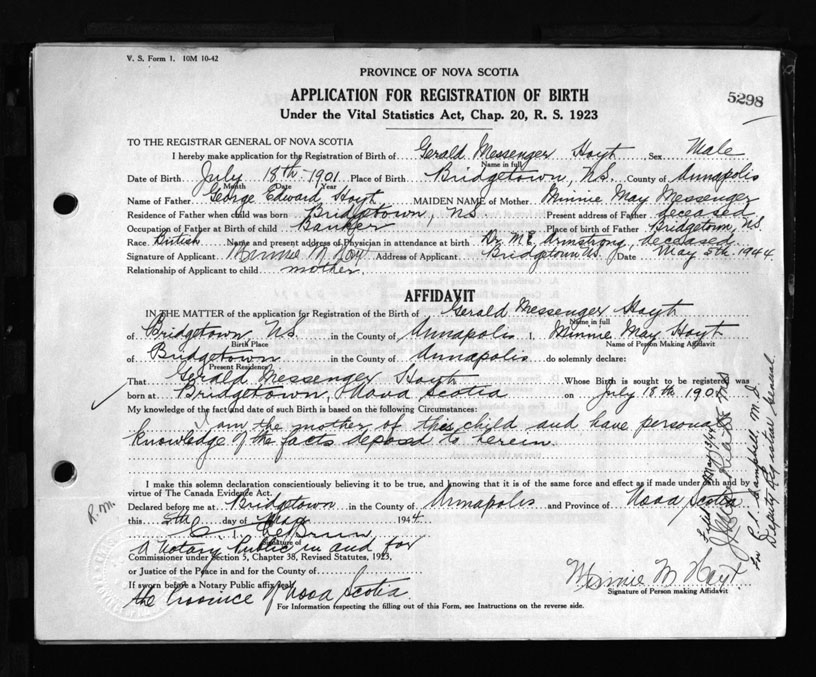 V. S. Form 1. 10M 10-42
PROVINCE OF NOVA SCOTIA
APPLICATION FOR REGISTRATION OF BIRTH
5298
Under the Vital Statistics Act, Chap. 20, R. S. 1923
TO THE REGISTRAR GENERAL OF NOVA SCOTIA
I hereby make application for the Registration of Birth of Gerald Messenger Hoyt Sex Male
Name in full
Date of Birth July 18th 1901 Place of Birth Bridgetown, N.S. County of Annapolis
Month Date Year
Name of Father George Edward Hoyt MAIDEN NAME of Mother Minnie May Messenger
Residence of Father when child was born Bridgetown, N.S. Present address of Father deceased
Occupation of Father at Birth of child Banker Place of birth of Father Bridgetown, N.S.
Race British Name and present address of Physician in attendance at birth Dr. M.E. Armstrong, deceased
Signature of Applicant Minnie M Hoyt Address of Applicant Bridgetown N.S. Date May 5th 1944
Relationship of Applicant to child mother
AFFIDAVIT
IN THE MATTER of the application for Registration of the Birth of Gerald Messenger Hoyt
Name in full
of Bridgetown N.S. in the County of Annapolis I, Minnie May Hoyt
Birth Place Name of Person Making Affidavit
of Bridgetown in the County of Annapolis do solemnly declare:
Present Residence
That Gerald Messenger Hoyt Whose Birth is sought to be registered was
born at Bridgetown, Nova Scotia on July 18th 1901
My knowledge of the fact and date of such Birth is based on the following Circumstances:
I am the mother of this child and have personal
knowledge of the facts deposed to herein.
I make this solemn declaration conscientiously believing it to be true, and knowing that it is of the same force and effect as if made under oath and by
virtue of The Canada Evidence Act.
R.M.
Declared before me at Bridgetown in the County of Annapolis and Province of Nova Scotia
this 5th day of May 1944
Signature of
A Notary Public in and for
Commissioner under Section 5, Chapter 38, Revised Statutes, 1923,
or Justice of the Peace in and for the County of
If sworn before a Notary Public affix seal.
the Province of Nova Scotia
Minnie M Hoyt
Signature of Person making Affidavit
For Information respecting the filling out of this Form, see Instructions on the reverse side.
Filed May
for P.S. Campbell M.D.
Deputy Registrar General